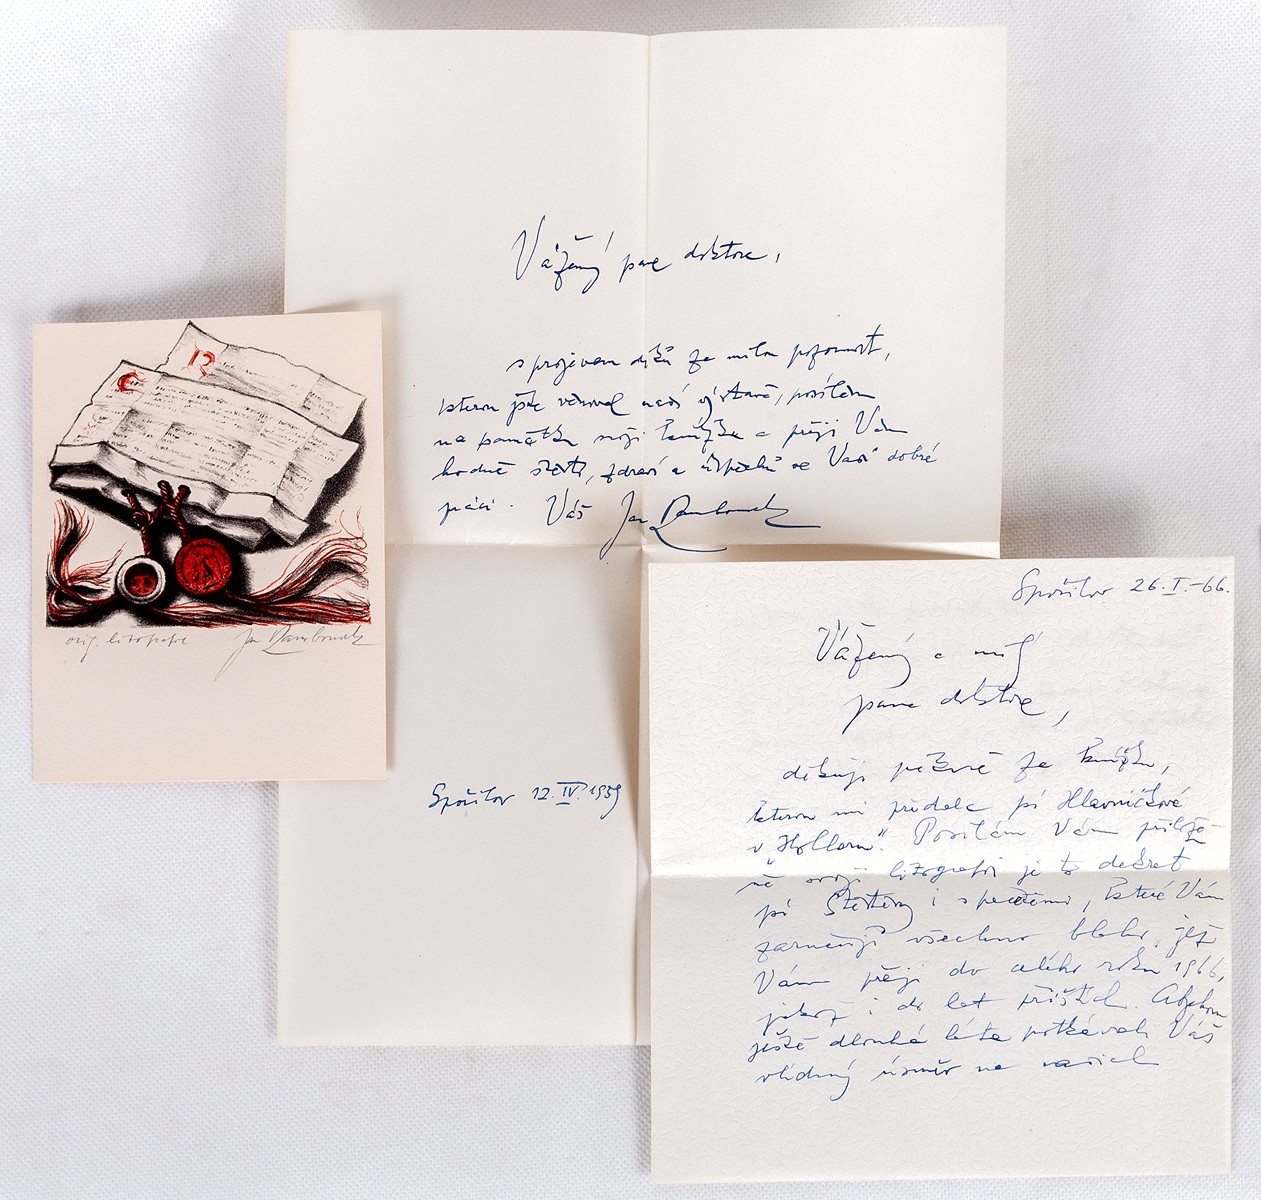 Vážený pane doktore,
s projevem díků za milou pozornost,
kterou jste věnoval naší výstavě, posílám
na památku svoji knížku a přeji Vám
hodně štěstí, zdraví a úspěchů ve Vaší dobré
práci. Váš Jan Rambousek
Spořilov 12. IV. 1959
R
C
orig. litografie Jan Rambousek
Spořilov 26. I. - 66.
Vážený a milý
pane doktore,
děkuji pěkně za knížku,
kterou mi předala pí Hlavničková
v „Hollaru". Posílám Vám přilože-
ně svoji litografii je to dekret
pí Štěstěny i s pečetěmi, které Vám
zaručují všechno blaho, jež
Vám přeji do celého roku 1966,
jakož i do let příštích. Abychom
ještě dlouhá léta potkávali Váš
vlídný úsměv na našich